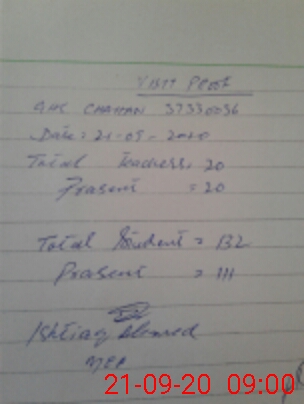 VISIT PROOF
GHS CHAHAN 37330036
Date: 21-09-2020
Total Teachers = 20
Prasent = 20
Total Student = 132
Prasent = 111
Ishtiaq Ahmed
21-09-20 09:00